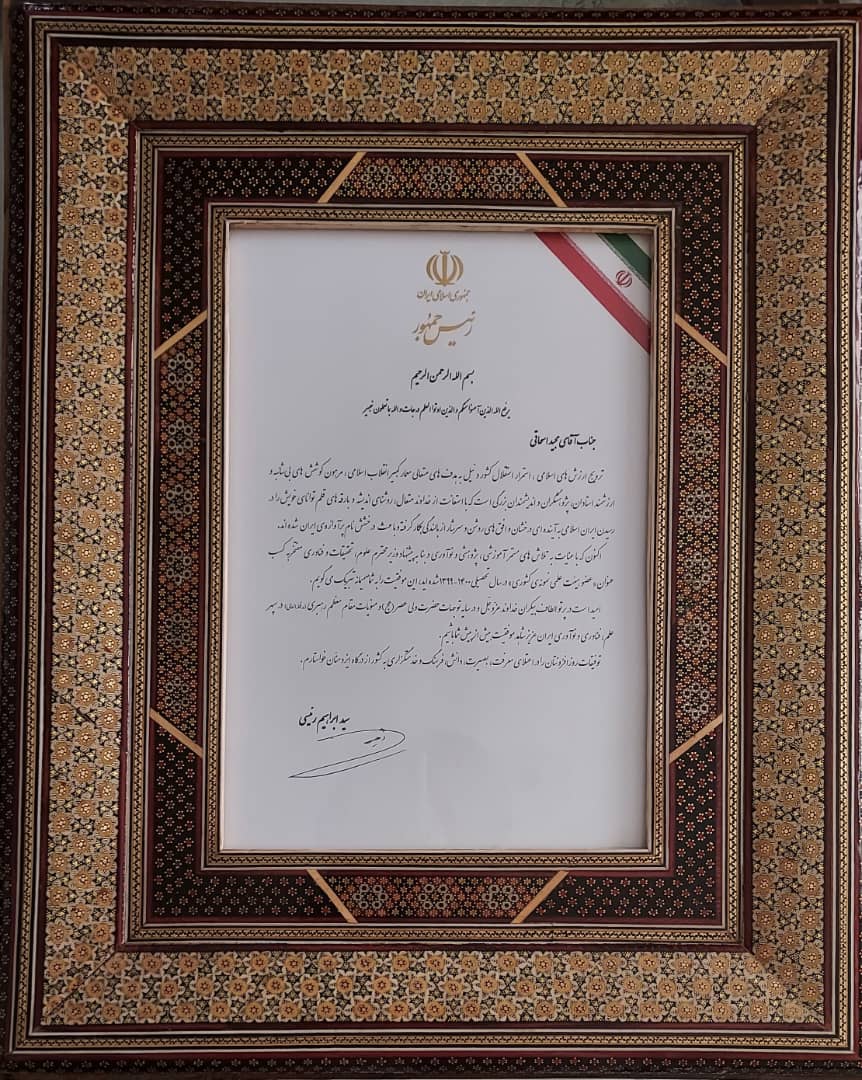 جمهوری اسلامی ایران
رئیس جمهور
بسم الله الرحمن الرحیم
یرفع الله الذین آمنوا منکم والذین اوتوا العلم درجات والله بما تعملون خبیر
جناب آقای مجید اسحاقی
ترویج ارزش های اسلامی، استمرار استقلال کشور و نیل به هدف های متعالی معمار کبیر انقلاب اسلامی، مرهون کوشش های بی شائبه و
ارزشمند استادان، پژوهشگران و اندیشمندان بزرگی است که با استعانت از خداوند متعال، روشنای اندیشه و بارقه های قلم توانای خویش را در
رسیدن ایران اسلامی به آینده ای درخشان و افق های روشن و سرشار از بالندگی بکار گرفته و باعث درخشش نام پرآوازه ی ایران شده اند.
اکنون که با عنایت به تلاش های مستمر آموزشی، پژوهشی و نوآوری و بنا به پیشنهاد وزیر محترم علوم، تحقیقات و فناوری مفتخر به کسب
عنوان «عضو هیئت علمی نمونه ی کشوری» در سال تحصیلی ۱۴۰۰-۱۳۹۹ شده اید، این موفقیت را به شما صمیمانه تبریک می گویم.
امید است در پرتو الطاف بیکران خداوند عزوجل و در سایه توجهات حضرت ولی عصر (عج) و منویات مقام معظم رهبری (مدظله العالی) در سپهر
علم، فناوری و نوآوری ایران عزیز شاهد موفقیت بیش از پیش شما باشیم.
توفیقات روزافزونتان را در اعتلای معرفت، بصیرت، دانش، فرهنگ و خدمتگزاری به کشور از درگاه ایزد منان خواستارم.
سید ابراهیم رئیسی